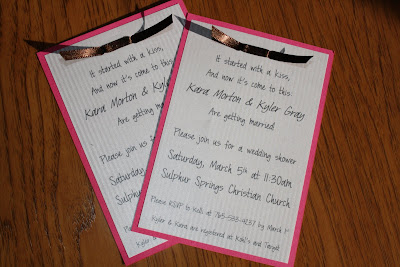 It started with a kiss,
And now it's come to this:
Kara Morton & Kyler Gray
Are getting married
Please join us for a wedding shower
Saturday, March 5th at 11:30am
Sulphur Springs Christian Church
Please RSVP to Kelli at 765-533-4237 by March 1st
Kyler & Kara are registered at Kohl's and Target
It started with a kiss,
And now it's come to this:
Kara Morton & Kyl
Are getting ma
Please join us for
Saturday
Sulphur
Please
Kyler &